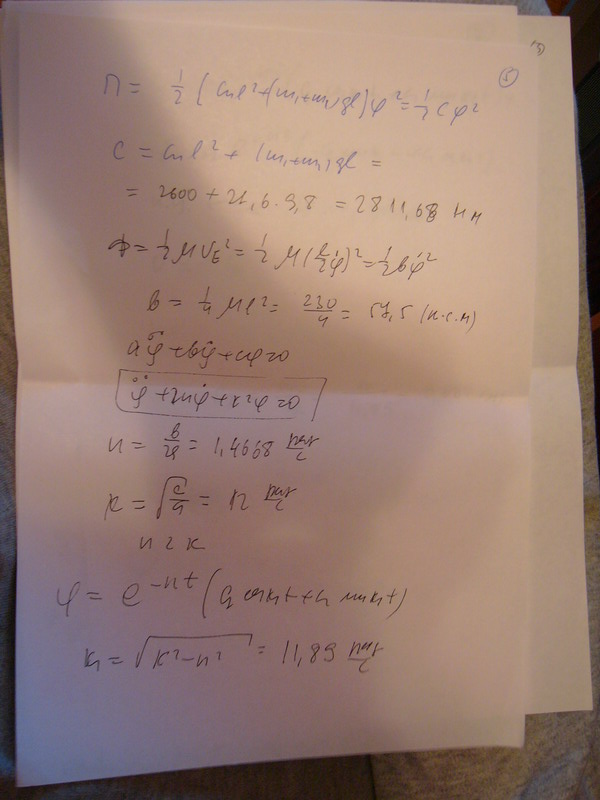 5
П = 1/2 [cп l² + (m₁+m₂)gl] φ² = 1/2 c φ²
c = cп l² + (m₁+m₂)gl =
= 2600 + 21,6·9,8 = 2811,68 Нм
Ф = 1/2 μ V_E² = 1/2 μ (l/2 φ̇)² = 1/2 в φ̇²
в = 1/4 μl² = 230/4 = 57,5 (н·с·м)
aφ̈ + вφ̇ + cφ = 0
φ̈ + 2nφ̇ + к²φ = 0
n = в/2a = 1,4668 рад/с
к = √(c/a) = 12 рад/с
n < к
φ = e^(-nt) (C₁ cos к₁t + C₂ sin к₁t)
к₁ = √(к² - n²) = 11,89 рад/с